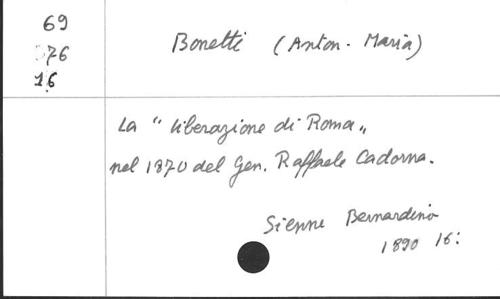 69
76
16
Bonetti (Anton-Maria)
La "liberazione di Roma„
nel 1870 del Gen. Raffaele Cadorna.
Sienne Bernardino
1890 16: